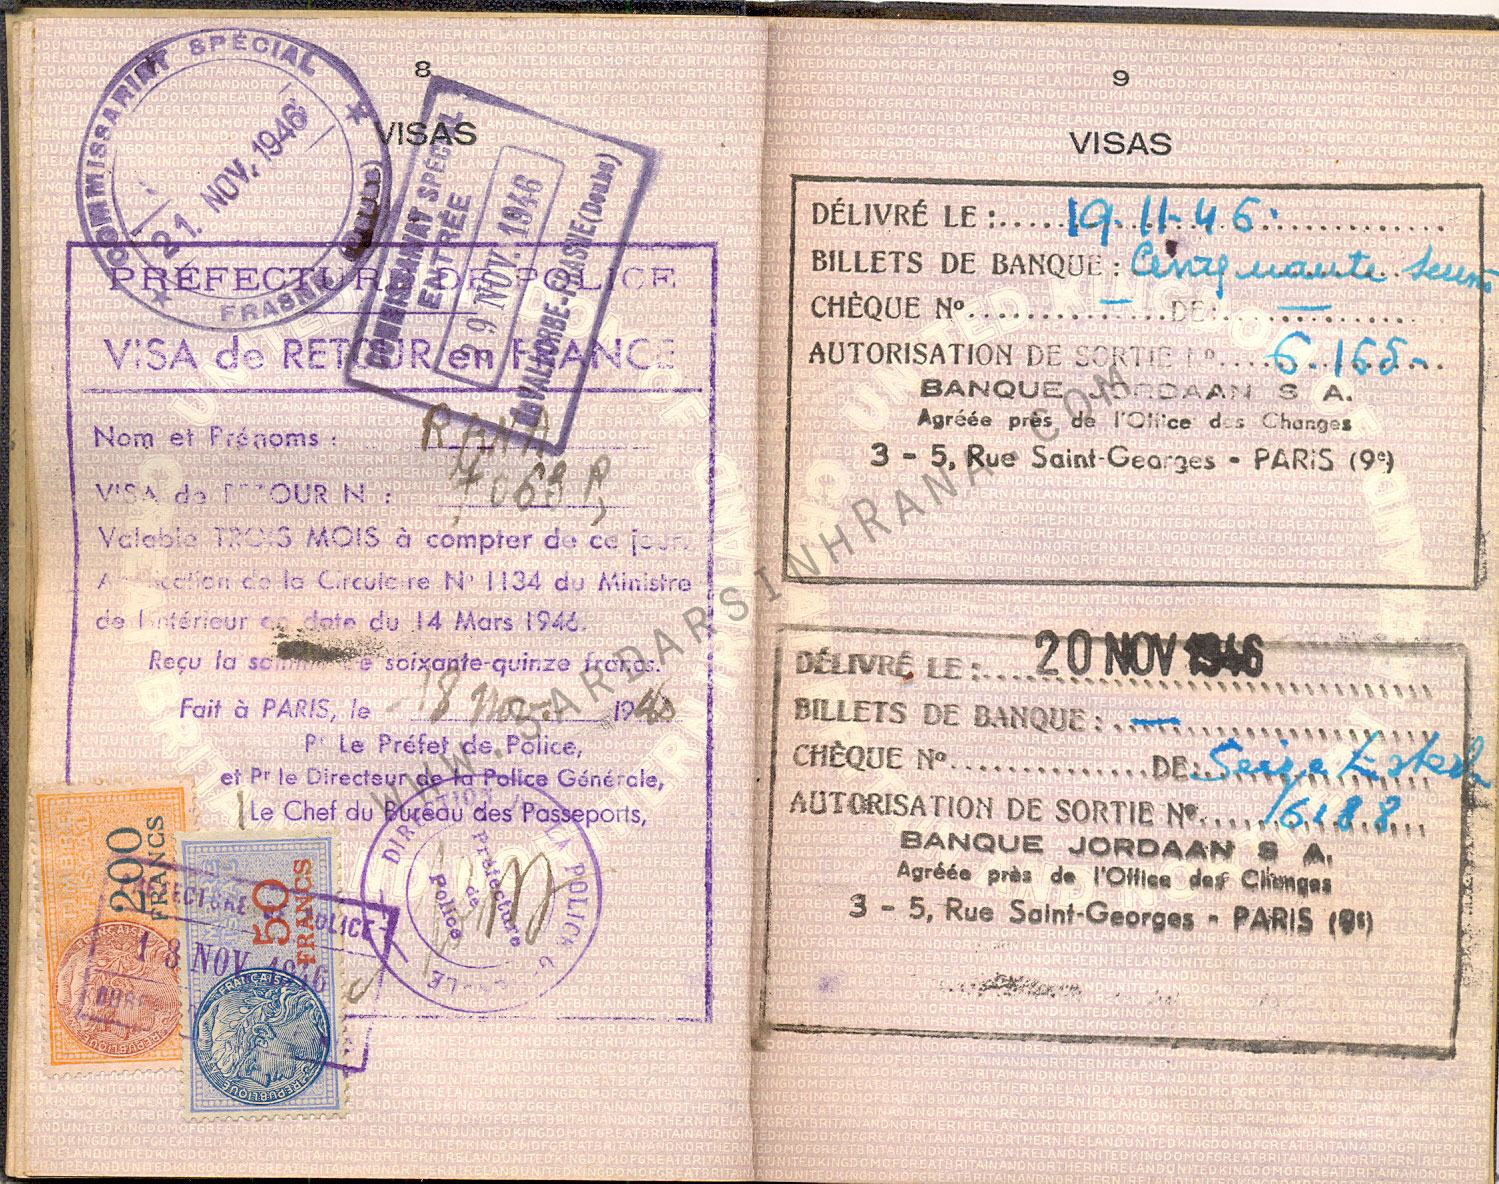 8
VISAS
COMMISSARIAT SPÉCIAL
21. NOV. 1946
FRASNE (DOUBS)
COMMISSARIAT SPÉCIAL
ENTRÉE
NOV. 1946
de VALLORBE-FRASNE (Doubs)
PRÉFECTURE DE POLICE
VISA de RETOUR en FRANCE
Nom et Prénoms : RANA
VISA de RETOUR N : 4068 A
Valable TROIS MOIS à compter de ce jour.
Application de la Circulaire N° 1134 du Ministre
de l'Intérieur en date du 14 Mars 1946.
Reçu la somme de soixante-quinze francs.
Fait à PARIS, le 18 nov 1946
Pr Le Préfet de Police,
et Pr le Directeur de la Police Générale,
Le Chef du Bureau des Passeports,
DIRECTION DE LA POLICE GÉNÉRALE
Préfecture
de
Police
200
FRANCS
50
FRANCS
PRÉFECTURE DE POLICE
18 NOV. 1946
RÉPUBLIQUE FRANÇAISE
RÉPUBLIQUE FRANÇAISE
9
VISAS
DÉLIVRÉ LE : 19-11-46
BILLETS DE BANQUE : Cinquante
CHÈQUE No — DE: —
AUTORISATION DE SORTIE No 6.165
BANQUE JORDAAN S A.
Agréée près de l'Office des Changes
3 - 5, Rue Saint-Georges - PARIS (9e)
DÉLIVRÉ LE : 20 NOV 1946
BILLETS DE BANQUE : —
CHÈQUE No DE:
AUTORISATION DE SORTIE No 6188
BANQUE JORDAAN S A.
Agréée près de l'Office des Changes
3 - 5, Rue Saint-Georges - PARIS (9e)
WWW.SARDARSINHRANA.COM